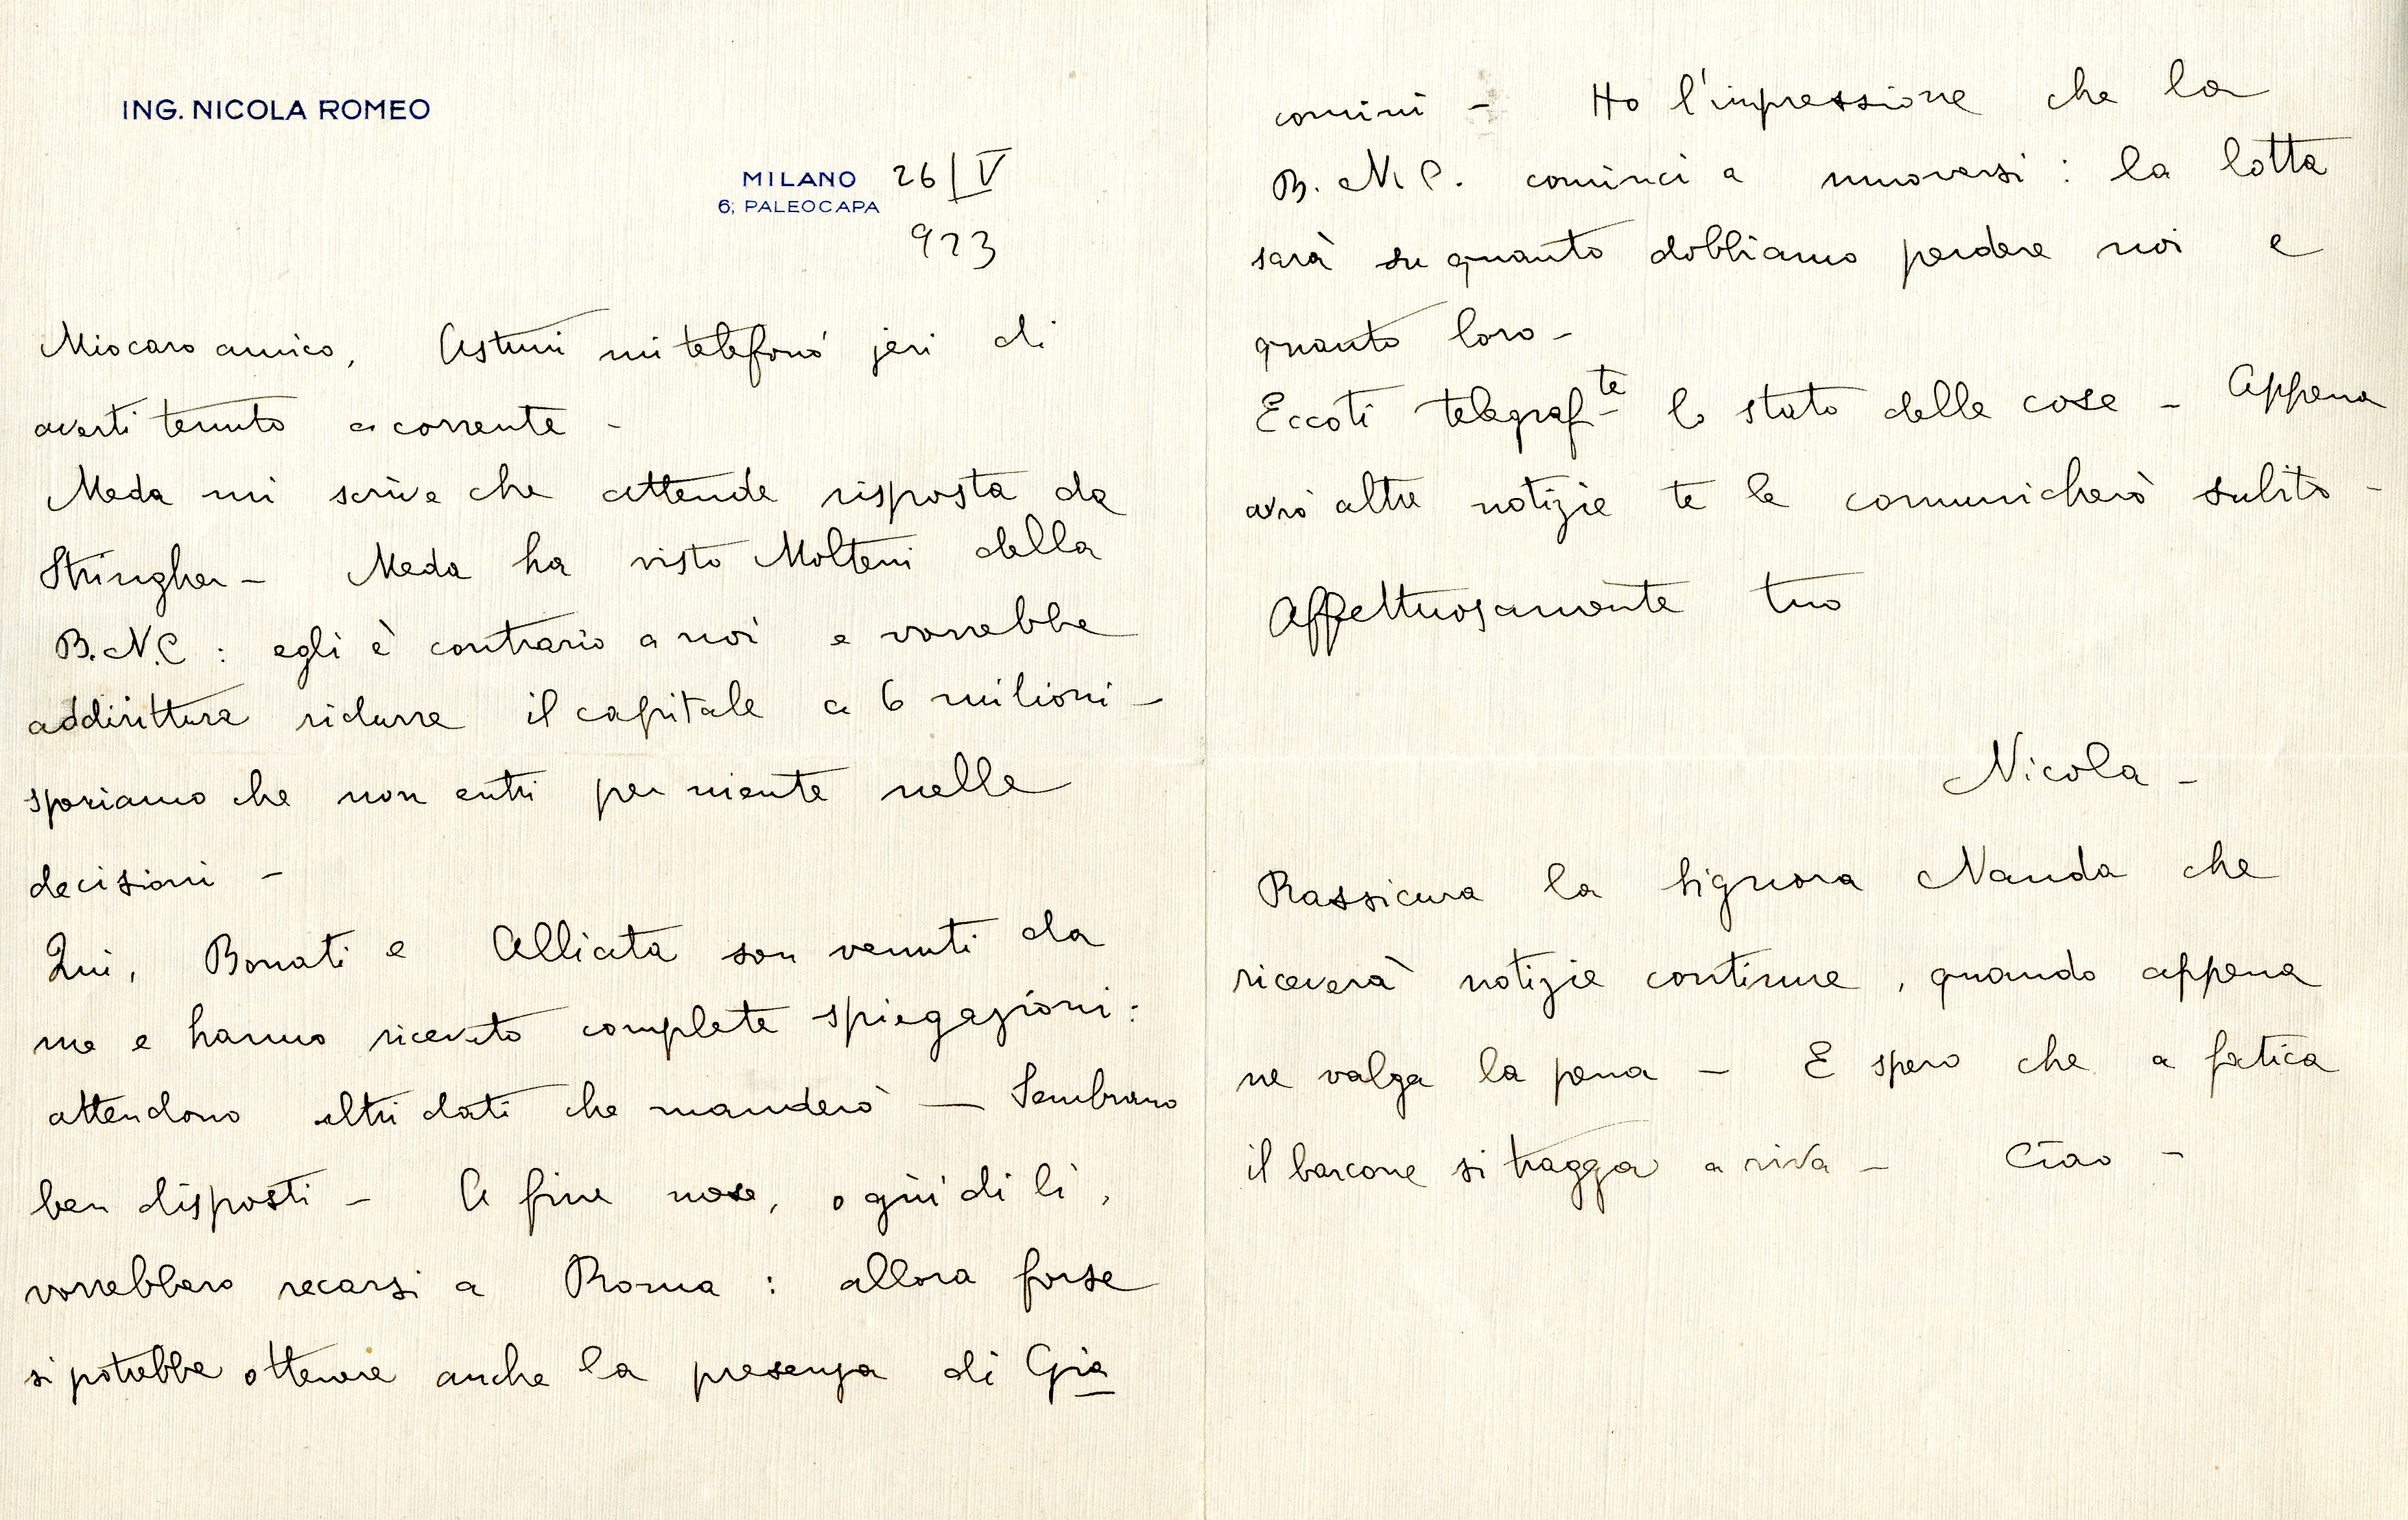 ING. NICOLA ROMEO
MILANO 26/V
6, PALEOCAPA
923
Mio caro amico, Astuni mi telefonò jeri di
averti tenuto a corrente -
Meda mi scrive che attende risposta da
Stringher - Meda ha visto Molteni della
B.N.C : egli è contrario a noi e vorrebbe
addirittura ridurre il capitale a 6 milioni -
speriamo che non entri per niente nelle
decisioni -
Qui, Bonati e Alliata son venuti da
me e hanno ricevuto complete spiegazioni :
attendono altri dati che manderò - Sembrano
ben disposti - A fine mese, o giù di lì,
vorrebbero recarsi a Roma : allora forse
si potrebbe ottenere anche la presenza di Gia
comini - Ho l'impressione che la
B. N. C. cominci a muoversi : la lotta
sarà su quanto dobbiamo perdere noi e
quanto loro -
Eccoti telegraf.te lo stato delle cose - Appena
avrò altre notizie te le comunicherò subito -
Affettuosamente tuo
Nicola -
Rassicura la Signora Nanda che
riceverà notizie continue, quando appena
ne valga la pena - E spero che a fatica
il barcone si tragga a riva - Ciao -